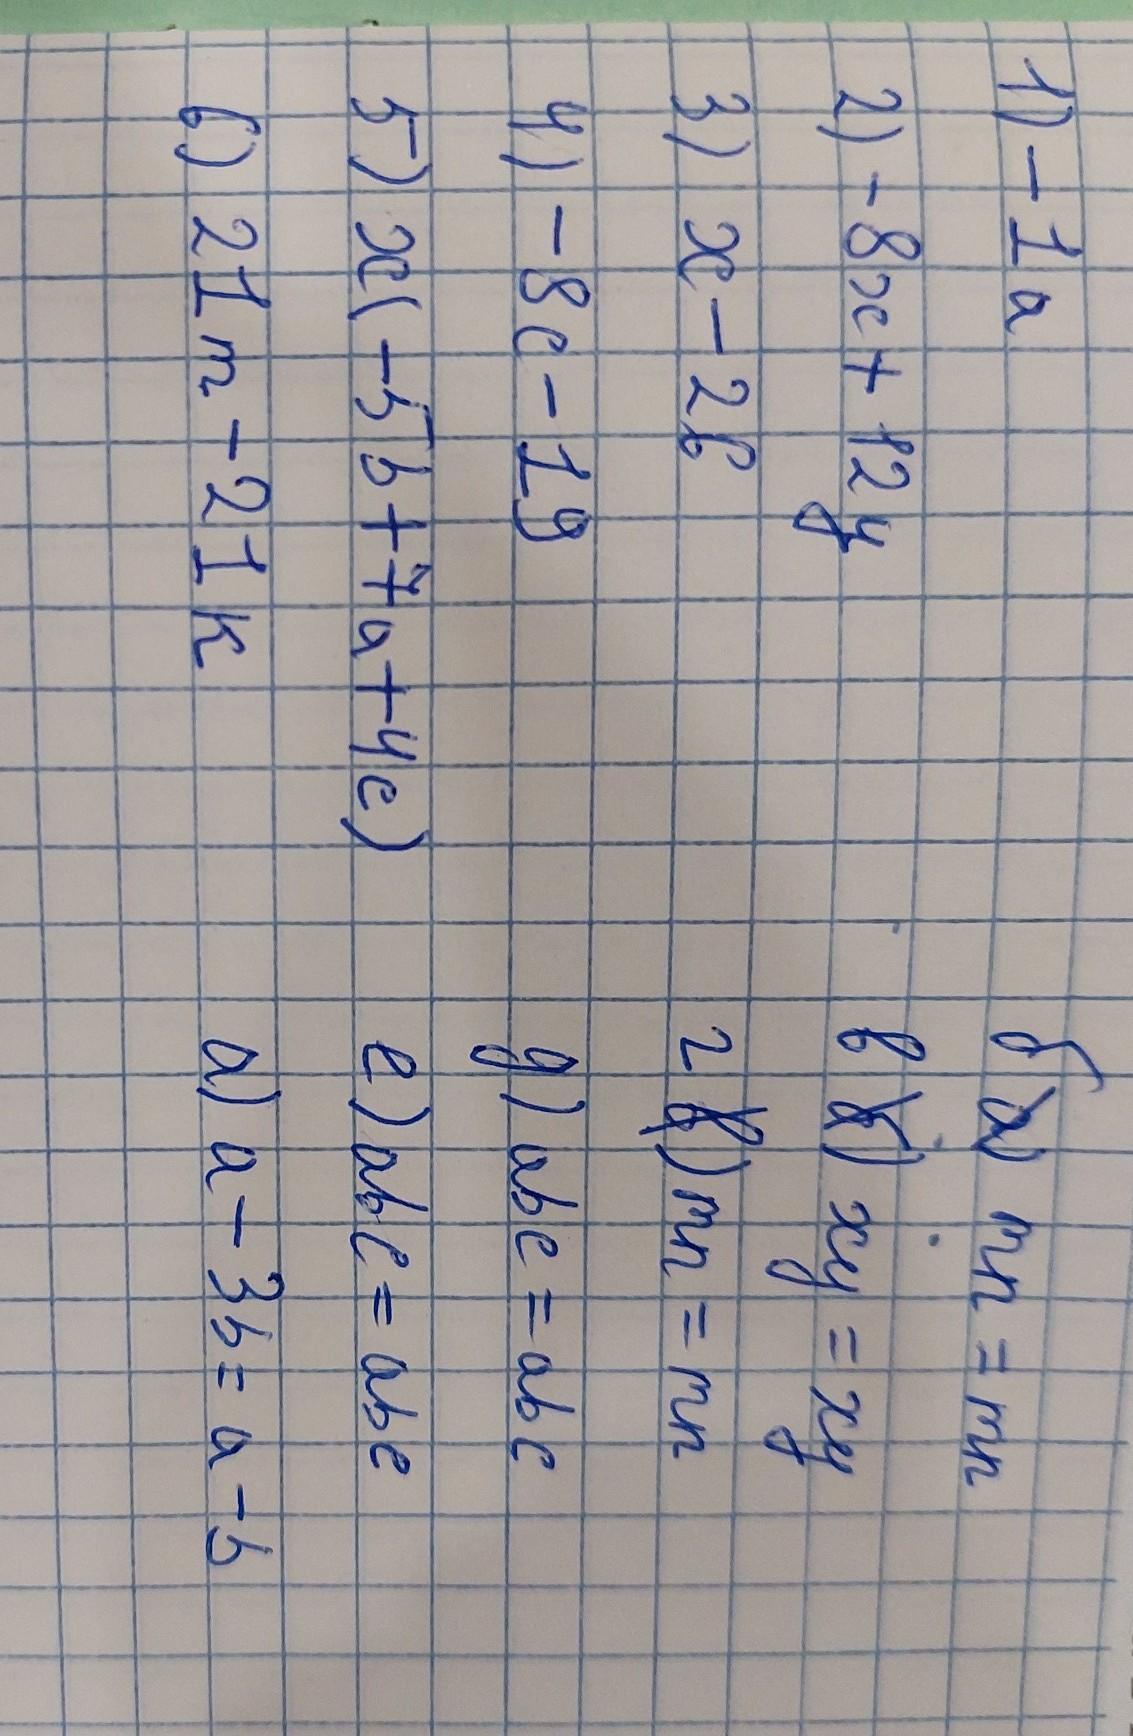 1) -1a
2) -8x + 12y
3) x - 2b
4) -8c - 19
5) x(-5b + 7a + 4c)
6) 21m - 21k
б) mn = mn
в) xy = xy
г) mn = mn
д) abc = abc
е) abc = abc
а) a - 3b = a - b